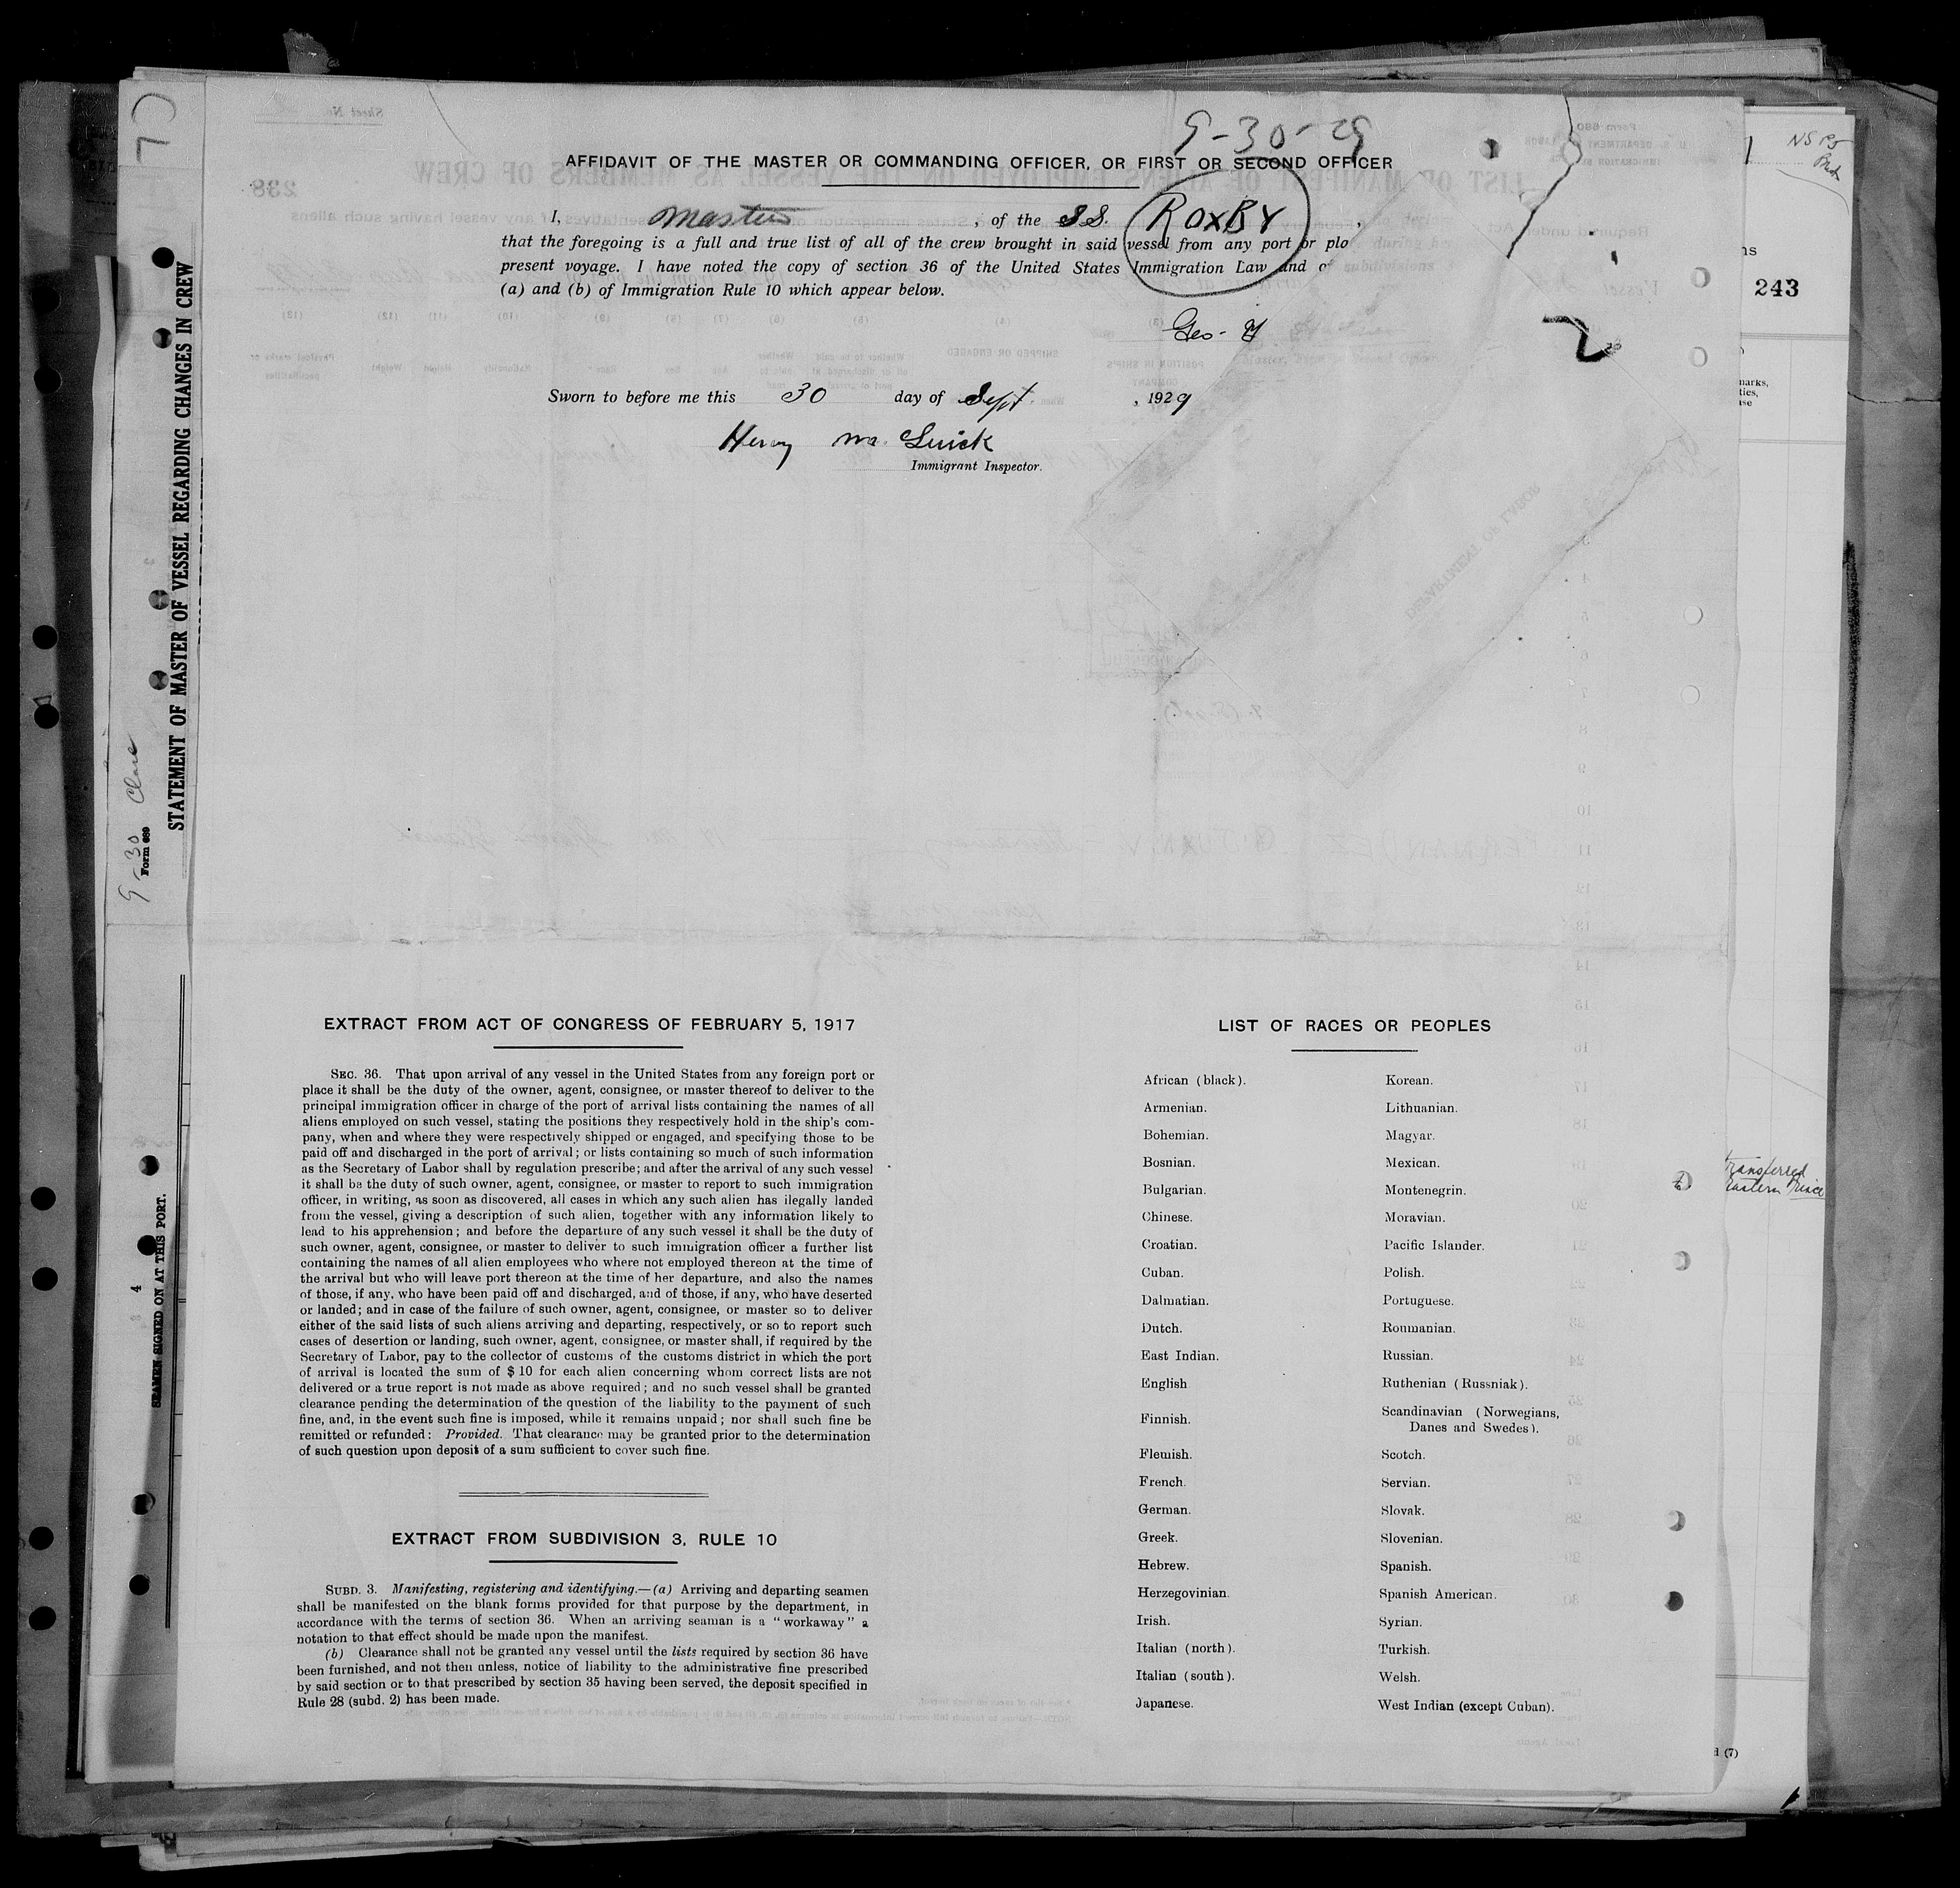 9-30-29
AFFIDAVIT OF THE MASTER OR COMMANDING OFFICER, OR FIRST OR SECOND OFFICER
I, Master, of the SS. ROXBY,
that the foregoing is a full and true list of all of the crew brought in said vessel from any port or
present voyage. I have noted the copy of section 36 of the United States Immigration Law and
(a) and (b) of Immigration Rule 10 which appear below.
Geo.
Sworn to before me this 30 day of Sept, 1929
Henry
Immigrant Inspector.
EXTRACT FROM ACT OF CONGRESS OF FEBRUARY 5, 1917
SEC. 36. That upon arrival of any vessel in the United States from any foreign port or
place it shall be the duty of the owner, agent, consignee, or master thereof to deliver to the
principal immigration officer in charge of the port of arrival lists containing the names of all
aliens employed on such vessel, stating the positions they respectively hold in the ship's com-
pany, when and where they were respectively shipped or engaged, and specifying those to be
paid off and discharged in the port of arrival; or lists containing so much of such information
as the Secretary of Labor shall by regulation prescribe; and after the arrival of any such vessel
it shall be the duty of such owner, agent, consignee, or master to report to such immigration
officer, in writing, as soon as discovered, all cases in which any such alien has ilegally landed
from the vessel, giving a description of such alien, together with any information likely to
lead to his apprehension; and before the departure of any such vessel it shall be the duty of
such owner, agent, consignee, or master to deliver to such immigration officer a further list
containing the names of all alien employees who where not employed thereon at the time of
the arrival but who will leave port thereon at the time of her departure, and also the names
of those, if any, who have been paid off and discharged, and of those, if any, who have deserted
or landed; and in case of the failure of such owner, agent, consignee, or master so to deliver
either of the said lists of such aliens arriving and departing, respectively, or so to report such
cases of desertion or landing, such owner, agent, consignee, or master shall, if required by the
Secretary of Labor, pay to the collector of customs of the customs district in which the port
of arrival is located the sum of $10 for each alien concerning whom correct lists are not
delivered or a true report is not made as above required; and no such vessel shall be granted
clearance pending the determination of the question of the liability to the payment of such
fine, and, in the event such fine is imposed, while it remains unpaid; nor shall such fine be
remitted or refunded: Provided. That clearance may be granted prior to the determination
of such question upon deposit of a sum sufficient to cover such fine.
EXTRACT FROM SUBDIVISION 3, RULE 10
SUBD. 3. Manifesting, registering and identifying.—(a) Arriving and departing seamen
shall be manifested on the blank forms provided for that purpose by the department, in
accordance with the terms of section 36. When an arriving seaman is a "workaway" a
notation to that effect should be made upon the manifest.
(b) Clearance shall not be granted any vessel until the lists required by section 36 have
been furnished, and not then unless, notice of liability to the administrative fine prescribed
by said section or to that prescribed by section 35 having been served, the deposit specified in
Rule 28 (subd. 2) has been made.
LIST OF RACES OR PEOPLES
African (black). Korean.
Armenian. Lithuanian.
Bohemian. Magyar.
Bosnian. Mexican.
Bulgarian. Montenegrin.
Chinese. Moravian.
Croatian. Pacific Islander.
Cuban. Polish.
Dalmatian. Portuguese.
Dutch. Roumanian.
East Indian. Russian.
English Ruthenian (Russniak).
Finnish. Scandinavian (Norwegians,
Danes and Swedes).
Flemish. Scotch.
French. Servian.
German. Slovak.
Greek. Slovenian.
Hebrew. Spanish.
Herzegovinian. Spanish American.
Irish. Syrian.
Italian (north). Turkish.
Italian (south). Welsh.
Japanese. West Indian (except Cuban).
STATEMENT OF MASTER OF VESSEL REGARDING CHANGES IN CREW
9-30
Form 689
SEAMEN SIGNED ON AT THIS PORT.
4
243
transferred
Eastern Prince
(7)